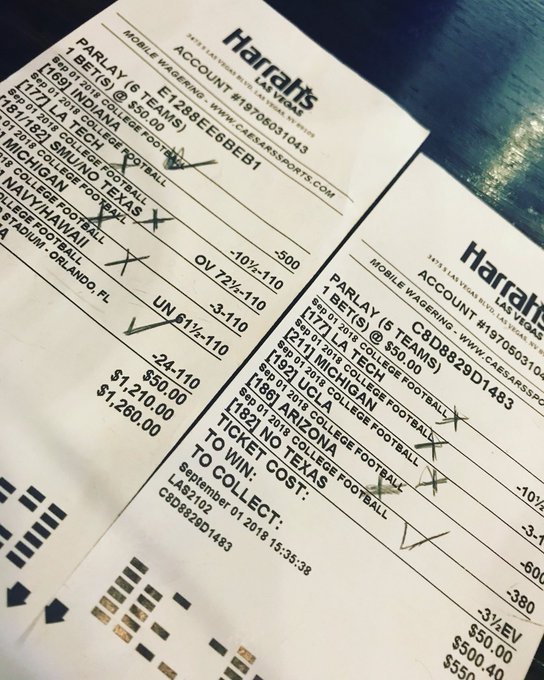 Harrah's
LAS VEGAS
3475 S LAS VEGAS BLVD, LAS VEGAS, NV 89109
ACCOUNT #19705031043
MOBILE WAGERING - WWW.CAESARSSPORTS.COM
E1288EE6BEB1
PARLAY (6 TEAMS)
1 BET(S) @ $50.00
Sep 01 2018 COLLEGE FOOTBALL
[169] INDIANA -500
Sep 01 2018 COLLEGE FOOTBALL
[177] LA TECH -10½-110
Sep 01 2018 COLLEGE FOOTBALL
[181/182] SMU/NO TEXAS OV 72½-110
2018 COLLEGE FOOTBALL
MICHIGAN -3-110
COLLEGE FOOTBALL
NAVY/HAWAII UN 61½-110
COLLEGE FOOTBALL
STADIUM - ORLANDO, FL
-24-110
$50.00
$1,210.00
$1,260.00
Harrah's
LAS VEGAS
3475 S LAS VEGAS BLVD, LAS VEGAS, NV
ACCOUNT #1970503104
MOBILE WAGERING - WWW.CAESARSSPO
C8D8829D1483
PARLAY (5 TEAMS)
1 BET(S) @ $50.00
Sep 01 2018 COLLEGE FOOTBALL
[177] LA TECH -10½
Sep 01 2018 COLLEGE FOOTBALL
[211] MICHIGAN -3-1
Sep 01 2018 COLLEGE FOOTBALL
[192] UCLA -600
Sep 01 2018 COLLEGE FOOTBALL
[186] ARIZONA -380
Sep 01 2018 COLLEGE FOOTBALL
[182] NO TEXAS -3½EV
TICKET COST: $50.00
TO WIN: $500.40
TO COLLECT: $550
September 01 2018 15:35:38
LAS2102
C8D8829D1483